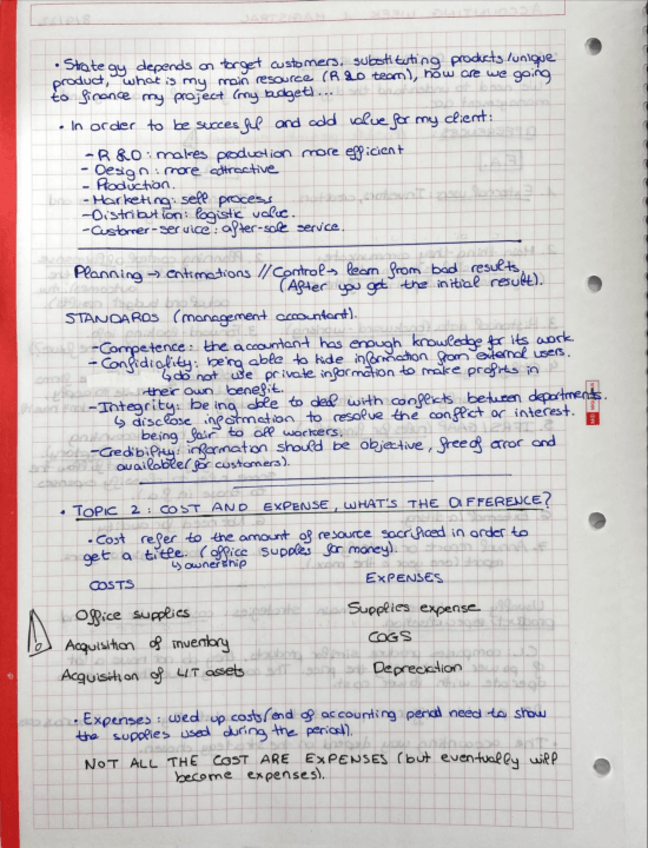 • Strategy depends on target customers, substituting products/unique
product, what is my main resource (R&D team), how are we going
to finance my project (my budget)...
• In order to be succesful and add value for my client:
- R&D: makes production more efficient
- Design: more attractive
- Production.
- Marketing: sell process
- Distribution: logistic value.
- Customer-service: after-sale service.
Planning → entimations // Control → learn from bad results
(After you get the initial result).
STANDARDS (management accountant).
- Competence: the accountant has enough knowledge for its work
- Confidiality: being able to hide information from external users.
↳ do not use private information to make profits in
their own benefit.
- Integrity: being able to deal with conflicts between departments.
↳ disclose information to resolve the conflict or interest.
being fair to all workers.
- Credibility: information should be objective, free of error and
available (for customers).
• TOPIC 2: COST AND EXPENSE, WHAT'S THE DIFFERENCE?
• Cost refer to the amount of resource sacrificed in order to
get a title. (office supples for money).
↳ ownership
COSTS EXPENSES
Office supplies Supplies expense
Acquisition of inventory COGS
Acquisition of L/T assets Depreciation
• Expenses: used up costs (end of accounting period need to show
the supplies used during the period).
NOT ALL THE COST ARE EXPENSES (but eventually will
become expenses).